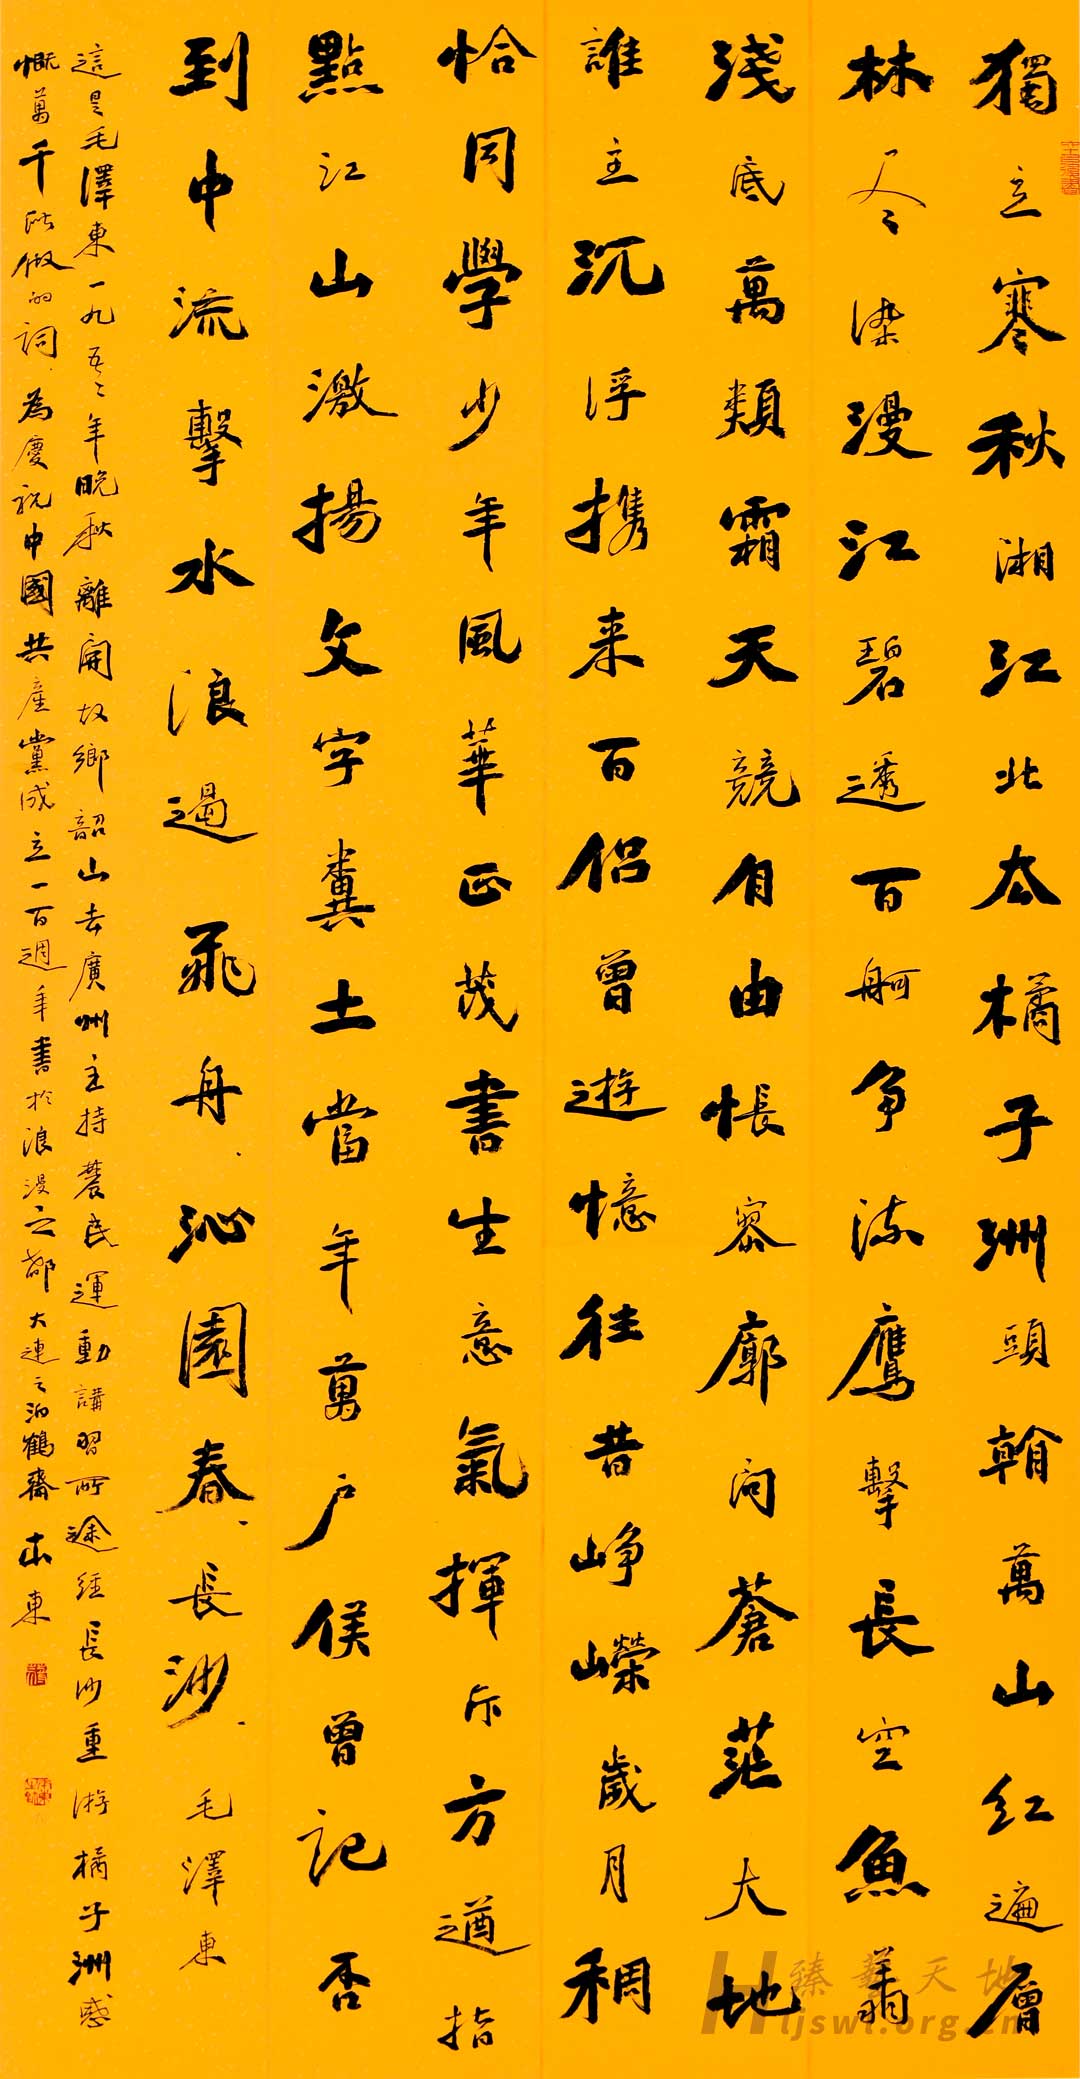 獨立寒秋湘江北去橘子洲頭看萬山红遍層
林尽染漫江碧透百舸争流鷹擊長空魚翔
淺底萬類霜天競自由悵寥廓问蒼茫大地
誰主沉浮携来百侣曾遊憶往昔峥嶸歲月稠
恰同學少年風華正茂書生意氣揮斥方遒指
點江山激揚文字糞土當年萬户侯曾記否
到中流擊水浪遏飛舟、沁園春、長沙、毛澤東
這是毛澤東一九五二年晚秋離開故鄉韶山去廣州主持農民運動講習所途經長沙重游橘子洲感
慨萬千所做的詞、為慶祝中國共產黨成立一百週年書於浪漫之都大連之泊鶴齋東
臻藝天地
Hljswl.org.cn